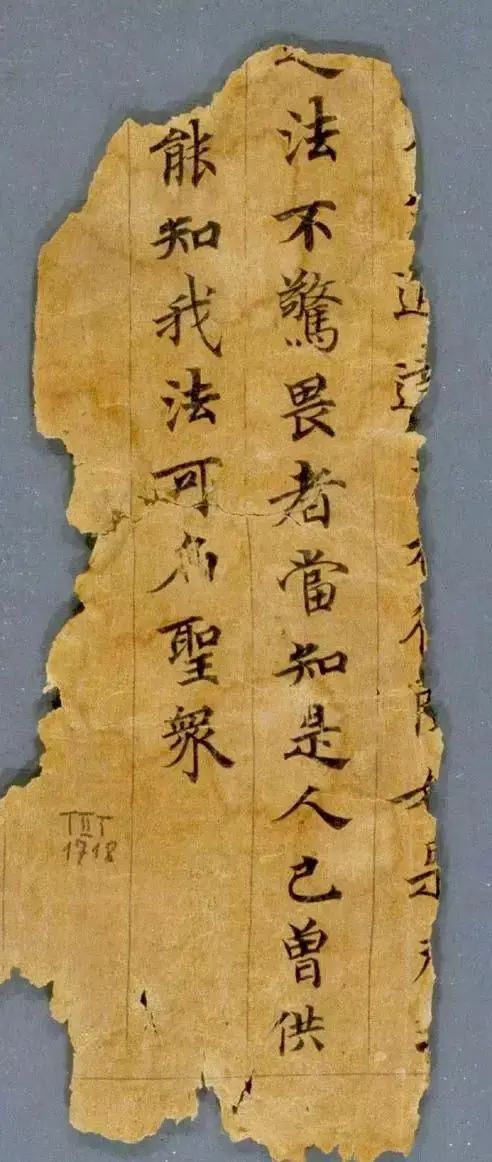 法不驚畏者當知是人已曾供
能知我法可名聖衆
TIIT
1718